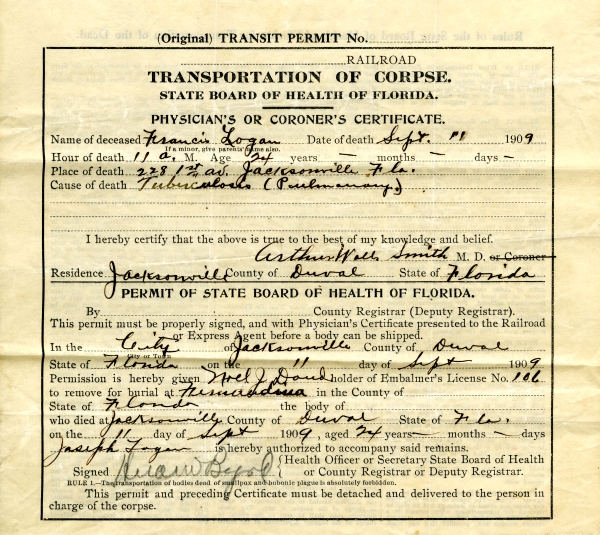 (Original) TRANSIT PERMIT No.
RAILROAD
TRANSPORTATION OF CORPSE.
STATE BOARD OF HEALTH OF FLORIDA.
PHYSICIAN'S OR CORONER'S CERTIFICATE.
Name of deceased Francis Logan Date of death Sept. 11 1909
If a minor, give parents' name also.
Hour of death 11 a. M. Age 24 years — months — days —
Place of death 228 1st av. Jacksonville Fla.
Cause of death Tuberculosis (Pulmonary)
I hereby certify that the above is true to the best of my knowledge and belief.
Arthur Walls Smith M. D. or Coroner
Residence Jacksonville County of Duval State of Florida
PERMIT OF STATE BOARD OF HEALTH OF FLORIDA.
By County Registrar (Deputy Registrar).
This permit must be properly signed, and with Physician's Certificate presented to the Railroad
or Express Agent before a body can be shipped.
In the City of Jacksonville County of Duval
City or Town
State of Florida on the 11 day of Sept 1909
Permission is hereby given Noel J. holder of Embalmer's License No. 106
to remove for burial at in the County of
State of Florida the body of
who died at Jacksonville County of Duval State of Fla.
on the 11 day of Sept 1909, aged 24 years — months — days
Joseph Logan is hereby authorized to accompany said remains.
Signed (Health Officer or Secretary State Board of Health
or County Registrar or Deputy Registrar.
RULE 1.—The transportation of bodies dead of smallpox and bubonic plague is absolutely forbidden.
This permit and preceding Certificate must be detached and delivered to the person in
charge of the corpse.